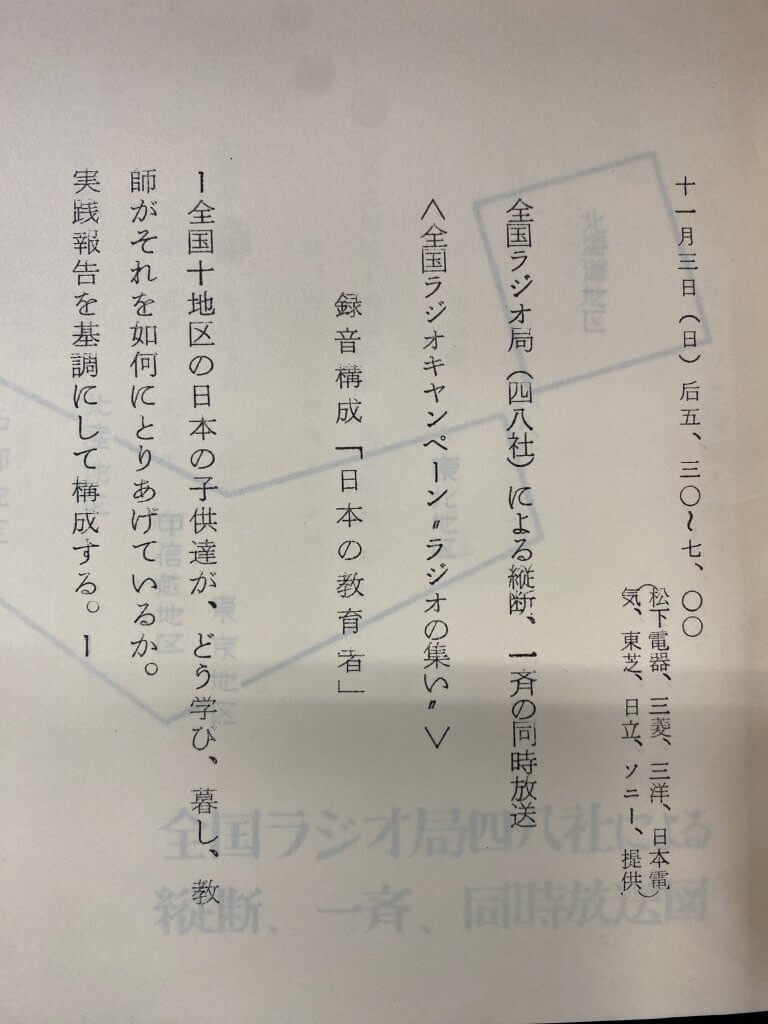 十一月三日(日)后五、三〇~七、〇〇
(松下電器、三菱、三洋、日本電
気、東芝、日立、ソニー、提供)
全国ラジオ局(四八社)による縦断、一斉の同時放送
<全国ラジオキャンペーン〝ラジオの集い〟>
録音構成「日本の教育者」
ー全国十地区の日本の子供達が、どう学び、暮し、教
師がそれを如何にとりあげているか。
実践報告を基調にして構成する。ー
北海道地区
東北地区
東京地区
甲信越地区
全国ラジオ局四八社による
縦断、一斉、同時放送図